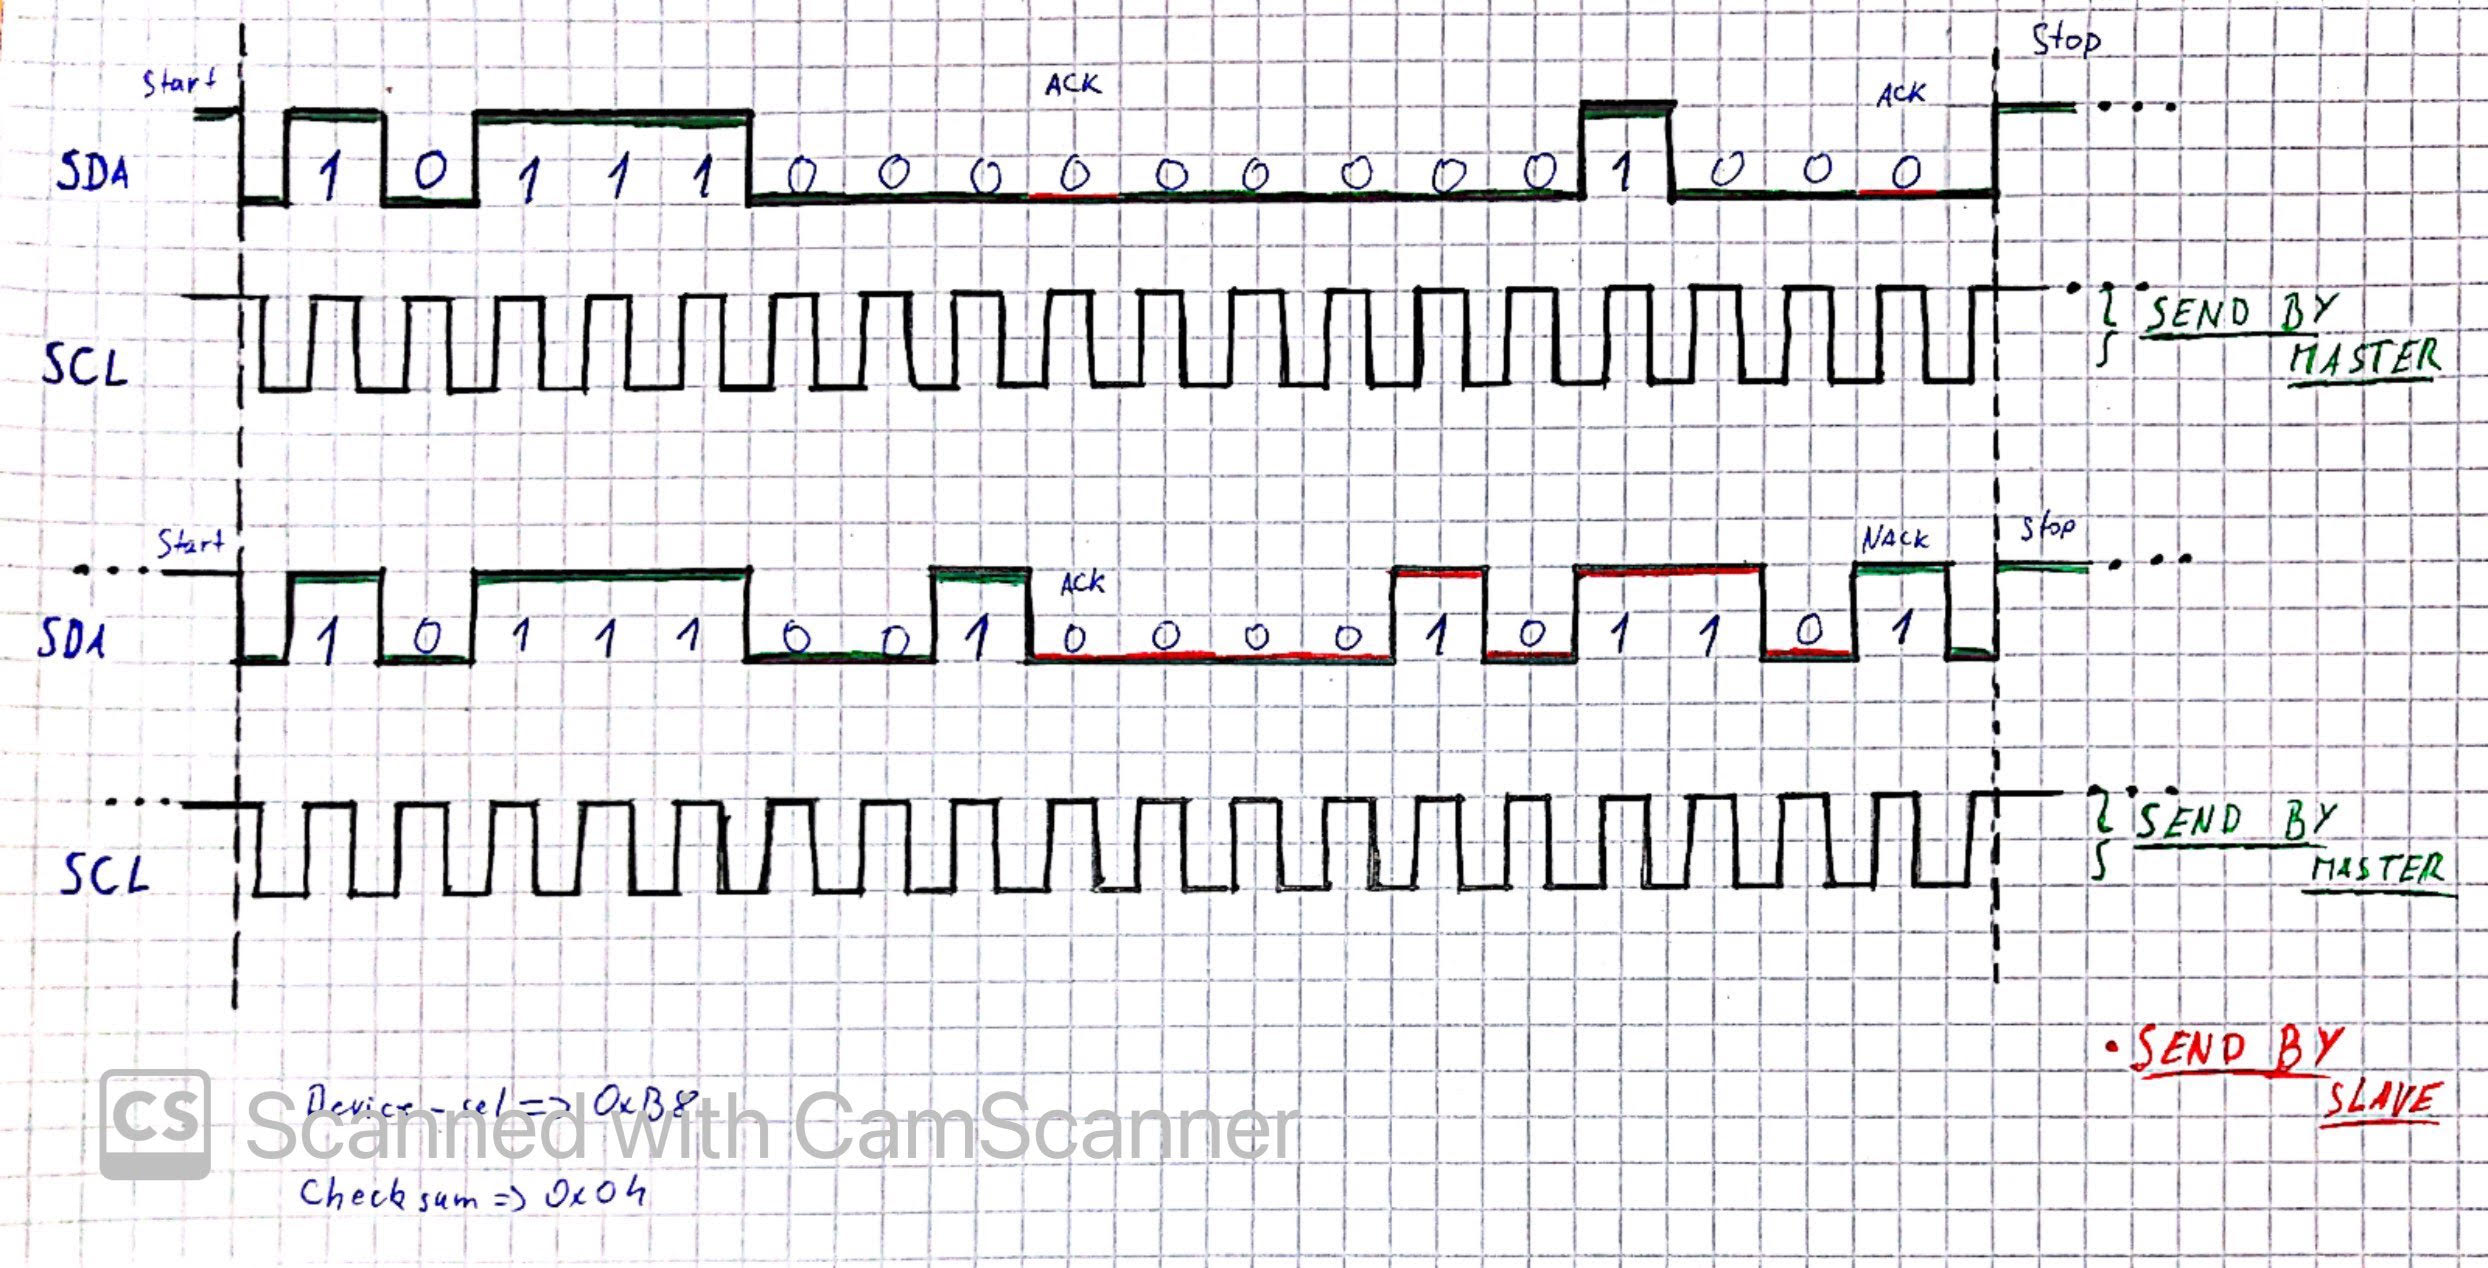 Stop
Start ACK ACK
SDA 1 0 1 1 1 0 0 0 0 0 0 0 0 0 1 0 0 0
SCL SEND BY
MASTER
Start ACK NACK Stop
SDA 1 0 1 1 1 0 0 1 0 0 0 0 1 0 1 1 0 1
SCL SEND BY
MASTER
SEND BY
SLAVE
Device-sel => 0xB8
CS Scanned with CamScanner
Checksum => 0x04